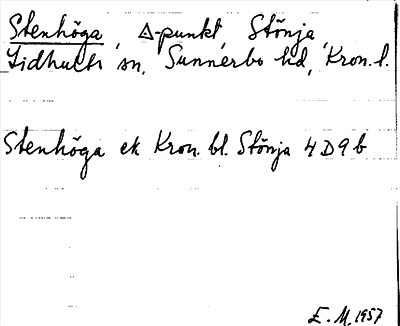 Stenhöga, Δ-punkt, Stönja,
Lidhults sn, Sunnerbo hd, Kron. l.
Stenhöga ek Kron. bl. Stönja 4D9b
E. M. 1957